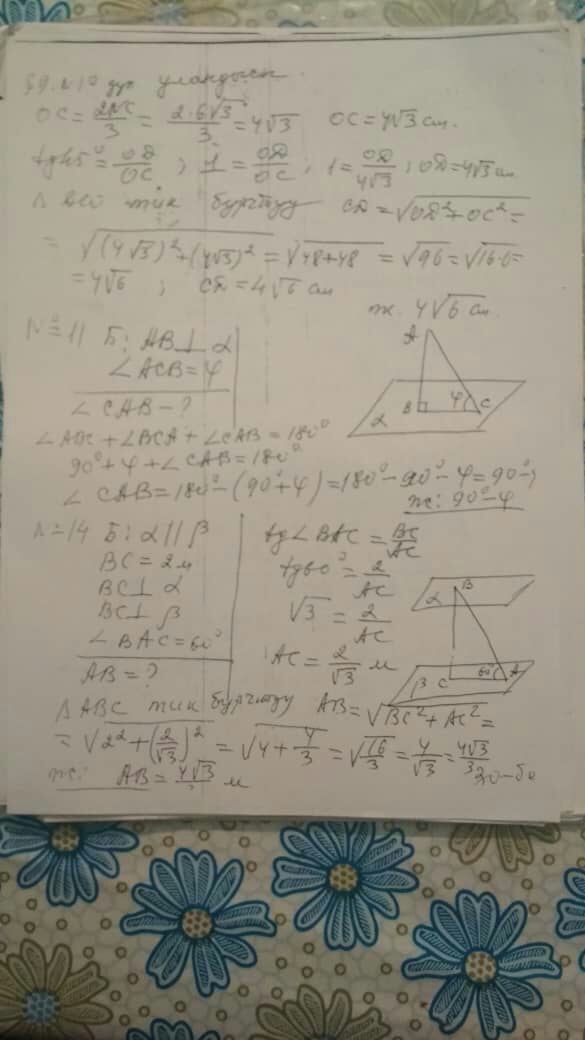 §9. №10 дун уландысы.
OC = 2NC/3 = 2·6√3/3 = 4√3 OC = 4√3 см.
tg45° = OD/OC ; 1 = OD/OC ; 1 = OD/4√3 ; OD = 4√3 см
Δ тик бурчтуу CD = √OD²+OC² =
= √(4√3)²+(4√3)² = √48+48 = √96 = √16·6 =
= 4√6 ; CD = 4√6 см
Ж. 4√6 см.
№11 Б: AB ⊥ α
∠ACB = φ
∠CAB - ?
A
B φ C
α
∠ABC + ∠BCA + ∠CAB = 180°
90° + φ + ∠CAB = 180°
∠CAB = 180° - (90°+φ) = 180° - 90° - φ = 90° -
Ж: 90° - φ
№14 Б: α || β
BC = 2м
BC ⊥ α
BC ⊥ β
∠BAC = 60°
AB = ?
tg∠BAC = BC/AC
tg60° = 2/AC
√3 = 2/AC
AC = 2/√3 м
α B
β C 60° A
Δ ABC тик бурчтуу AB = √BC² + AC² =
= √2² + (2/√3)² = √4 + 4/3 = √16/3 = 4/√3 = 4√3/3
Ж: AB = 4√3 м